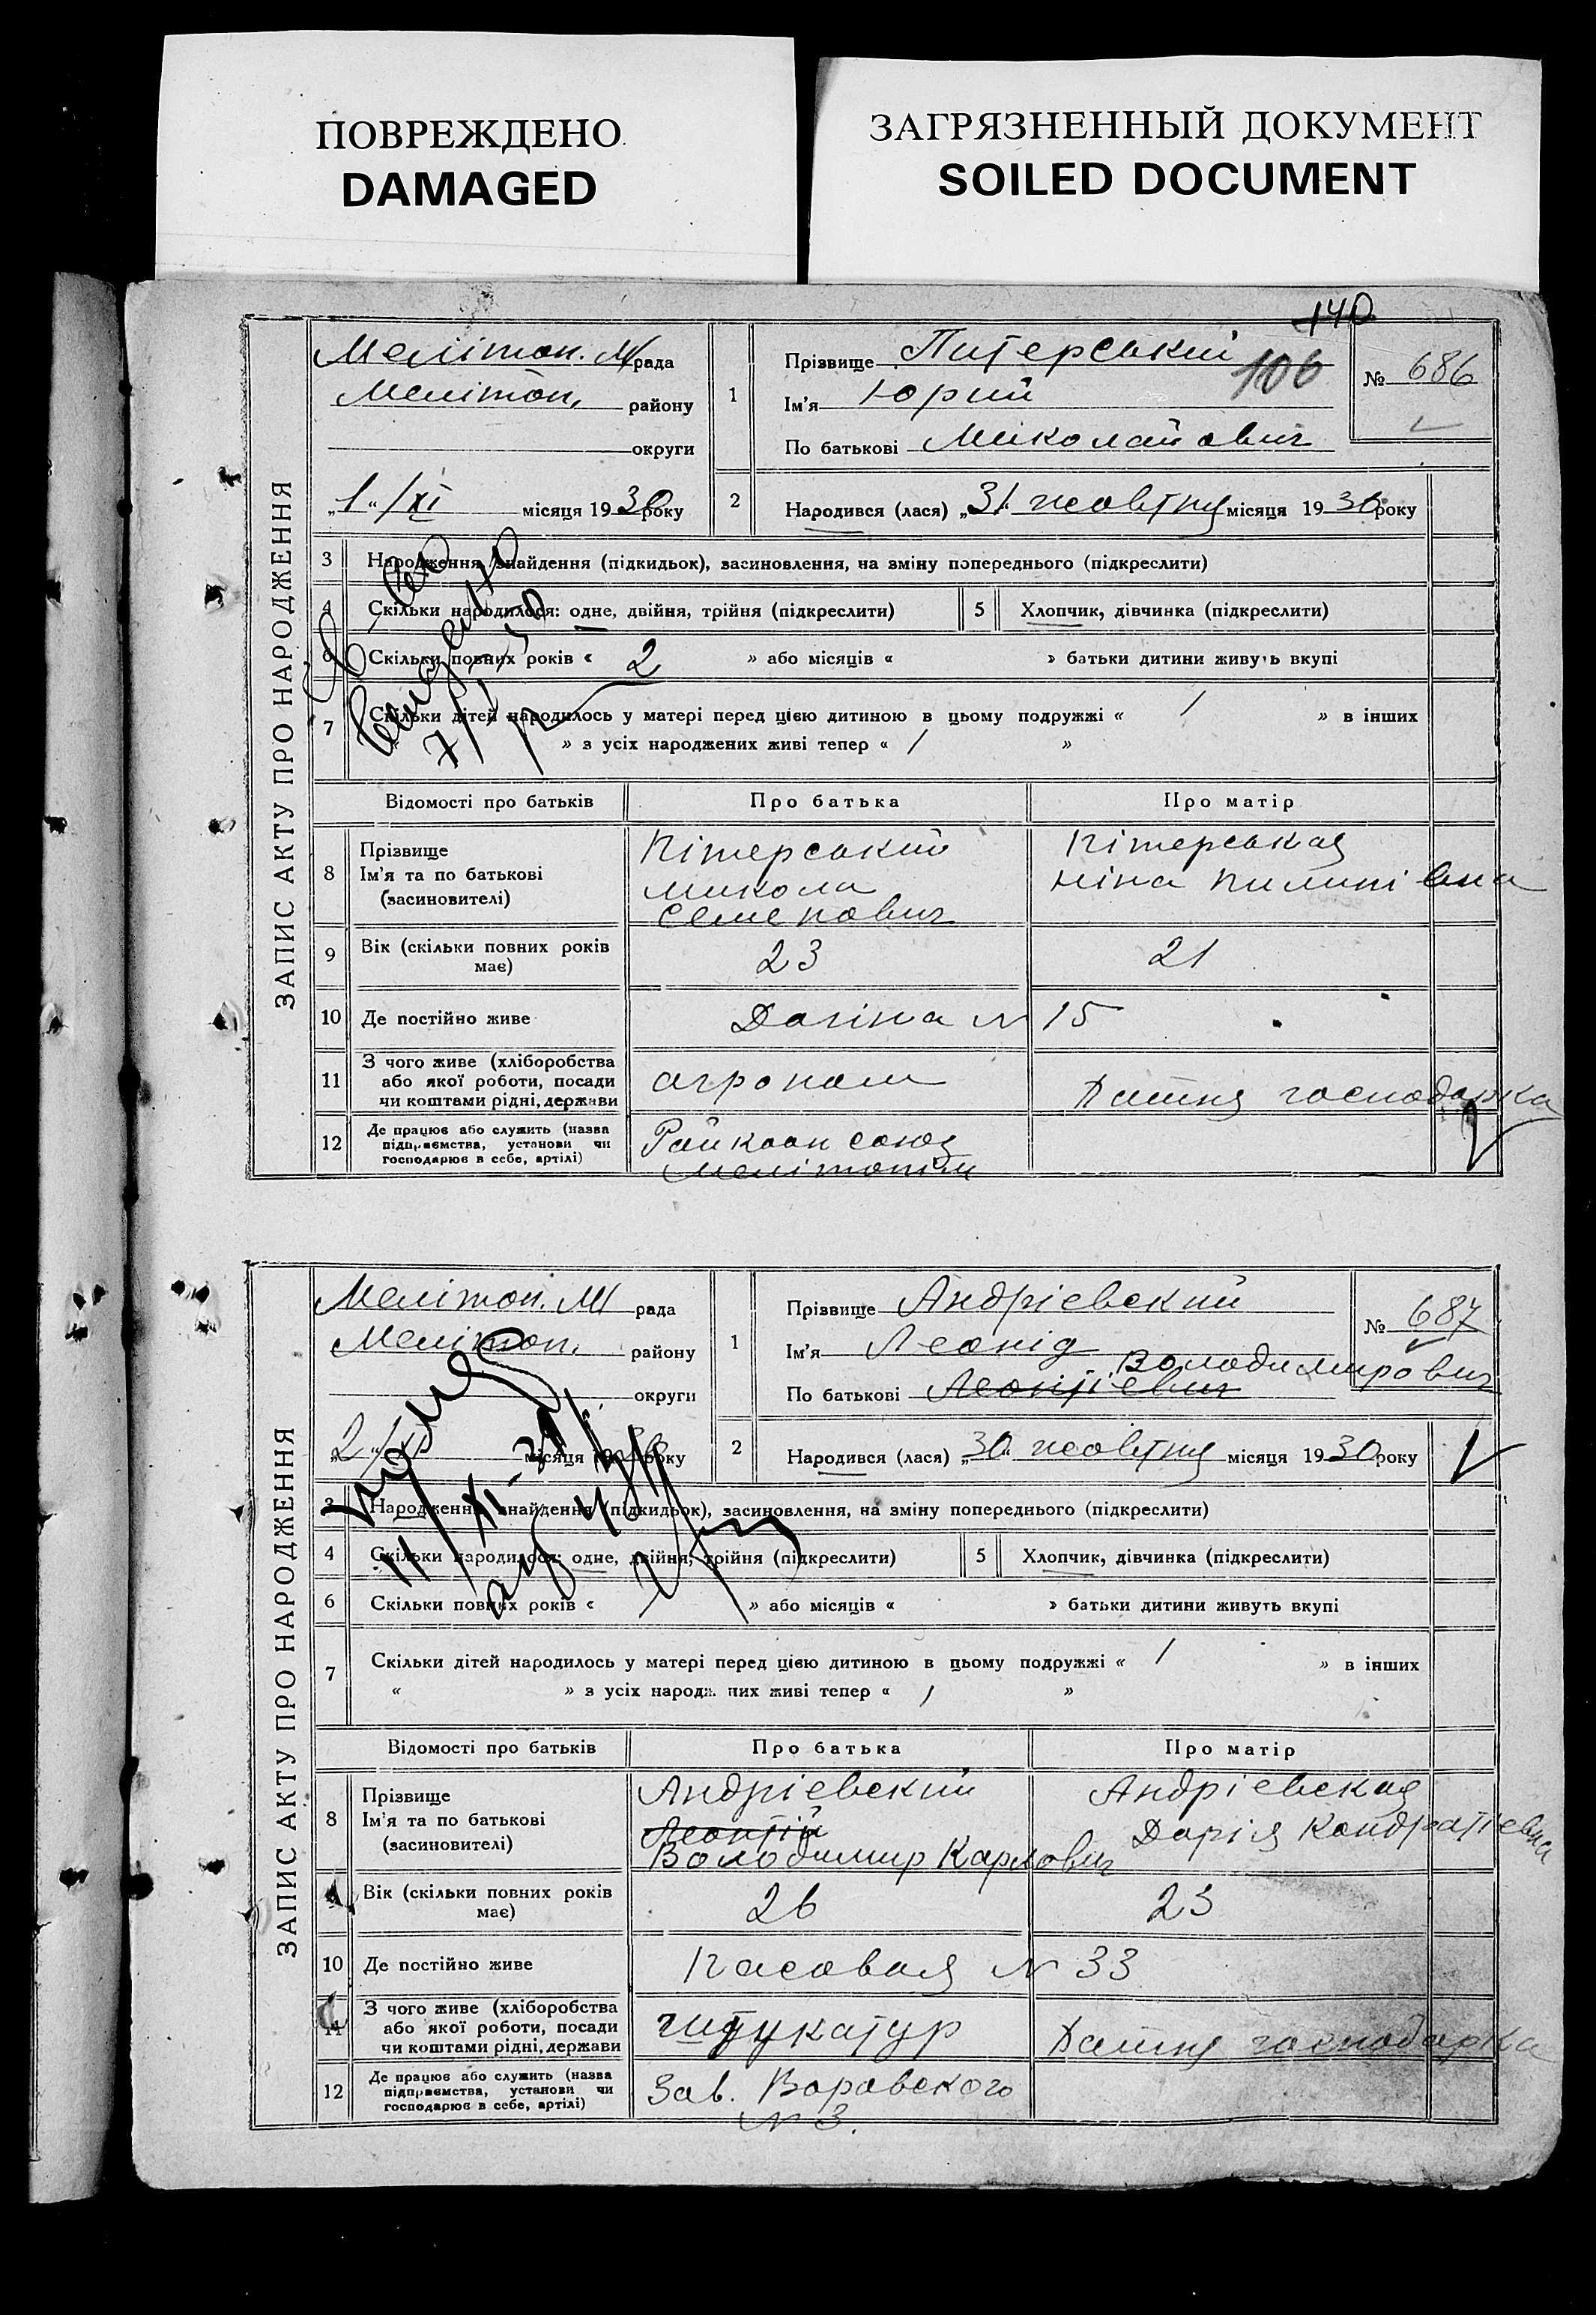 ПОВРЕЖДЕНО
DAMAGED
ЗАГРЯЗНЕННЫЙ ДОКУМЕНТ
SOILED DOCUMENT
140
ЗАПИС АКТУ ПРО НАРОДЖЕННЯ
Мелітоп. М/рада
Мелітоп. району
округи
„1“/XI місяця 1930 року
1
Прізвище Питерський
106
Ім'я Юрий
По батькові Миколайович
№ 686
2 Народився (лася) „31“ жовтня місяця 1930 року
3 Народження, знайдення (підкидьок), засиновлення, на зміну попереднього (підкреслити)
4 Скільки народилося: одне, двійня, трійня (підкреслити) 5 Хлопчик, дівчинка (підкреслити)
6 Скільки повних років « 2 » або місяців « » батьки дитини живуть вкупі
7 Скільки дітей народилось у матері перед цією дитиною в цьому подружжі « 1 » в інших
» з усіх народжених живі тепер « 1 »
Відомості про батьків Про батька Про матір
8 Прізвище Ім'я та по батькові (засиновителі)
Пітерський Микола Семенович
Пітерськая Ніна Пилипівна
9 Вік (скільки повних років має) 23 21
10 Де постійно живе Даліна N 15
11 З чого живе (хліборобства або якої роботи, посади чи коштами рідні, держави агроном Дамшня господарка
12 Де працює або служить (назва підприємства, установи чи господарює в себе, артілі)
Райкоопсоюз
Мелітопіль
ЗАПИС АКТУ ПРО НАРОДЖЕННЯ
Мелітоп. М/ рада
Мелітоп. району
округи
„2“/XI місяця 1930 року
1
Прізвище Андрієвский
Ім'я Леонід
Володимирович
По батькові Леонтієвич
№ 687
2 Народився (лася) „30“ жовтня місяця 1930 року
11/XI-30
3 Народження, знайдення (підкидьок), засиновлення, на зміну попереднього (підкреслити)
4 Скільки народилося: одне, двійня, трійня (підкреслити) 5 Хлопчик, дівчинка (підкреслити)
6 Скільки повних років « » або місяців « » батьки дитини живуть вкупі
7 Скільки дітей народилось у матері перед цією дитиною в цьому подружжі « 1 » в інших
« » з усіх народжених живі тепер « 1 »
Відомості про батьків Про батька Про матір
8 Прізвище Ім'я та по батькові (засиновителі)
Андрієвский
Леонтій
Володимир Карлович
Андрієвская
Дарія Кондратієвна
9 Вік (скільки повних років має) 26 23
10 Де постійно живе Часовая N 33
11 З чого живе (хліборобства або якої роботи, посади чи коштами рідні, держави штукатур Дамшня господарка
12 Де працює або служить (назва підприємства, установи чи господарює в себе, артілі)
Зав. Воровского
N 3.